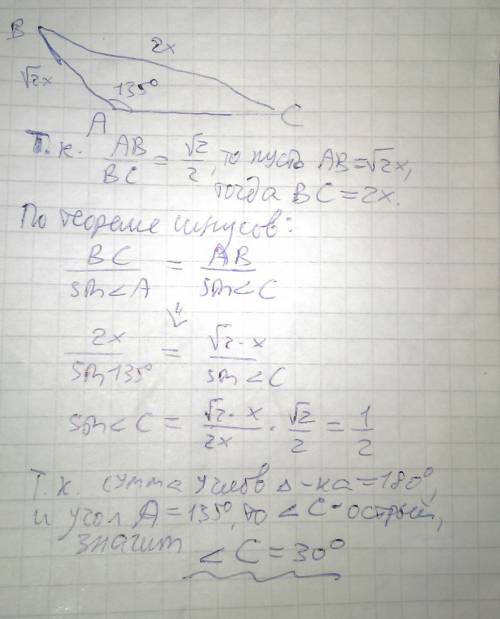 B
2x
√2x
135°
A
C
Т.к. AB/BC = √2/2, то пусть AB=√2x,
тогда BC=2x.
По теореме синусов:
BC/sin<A = AB/sin<C
⇓
2x/sin135° = √2·x/sin<C
sin<C = √2·x/2x · √2/2 = 1/2
Т.к. сумма углов △-ка=180°,
и угол A=135°, то <C-острый,
значит
<C=30°